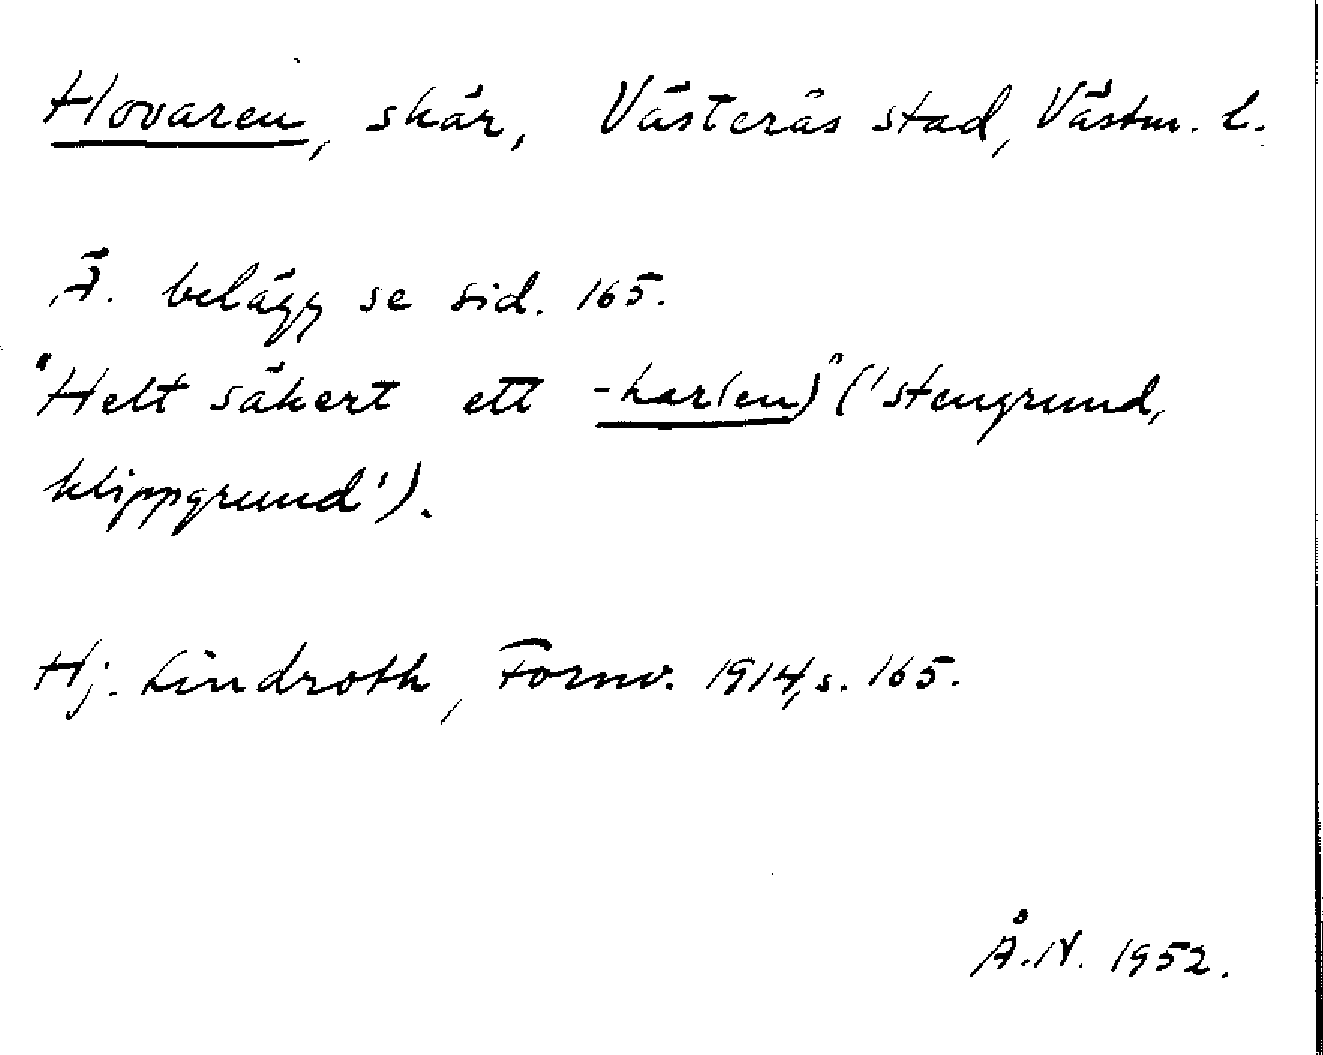 Hovaren, skär, Västerås stad, Västm. l.
Ä. belägg se sid. 165.
"Helt säkert ett -har(en)" ('stengrund,
klippgrund').
Hj. Lindroth, Fornv. 1914, s. 165.
Å.N. 1952.